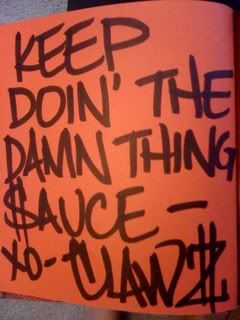 KEEP
DOIN' THE
DAMN THING
$AUCE -
XO- CLAW$